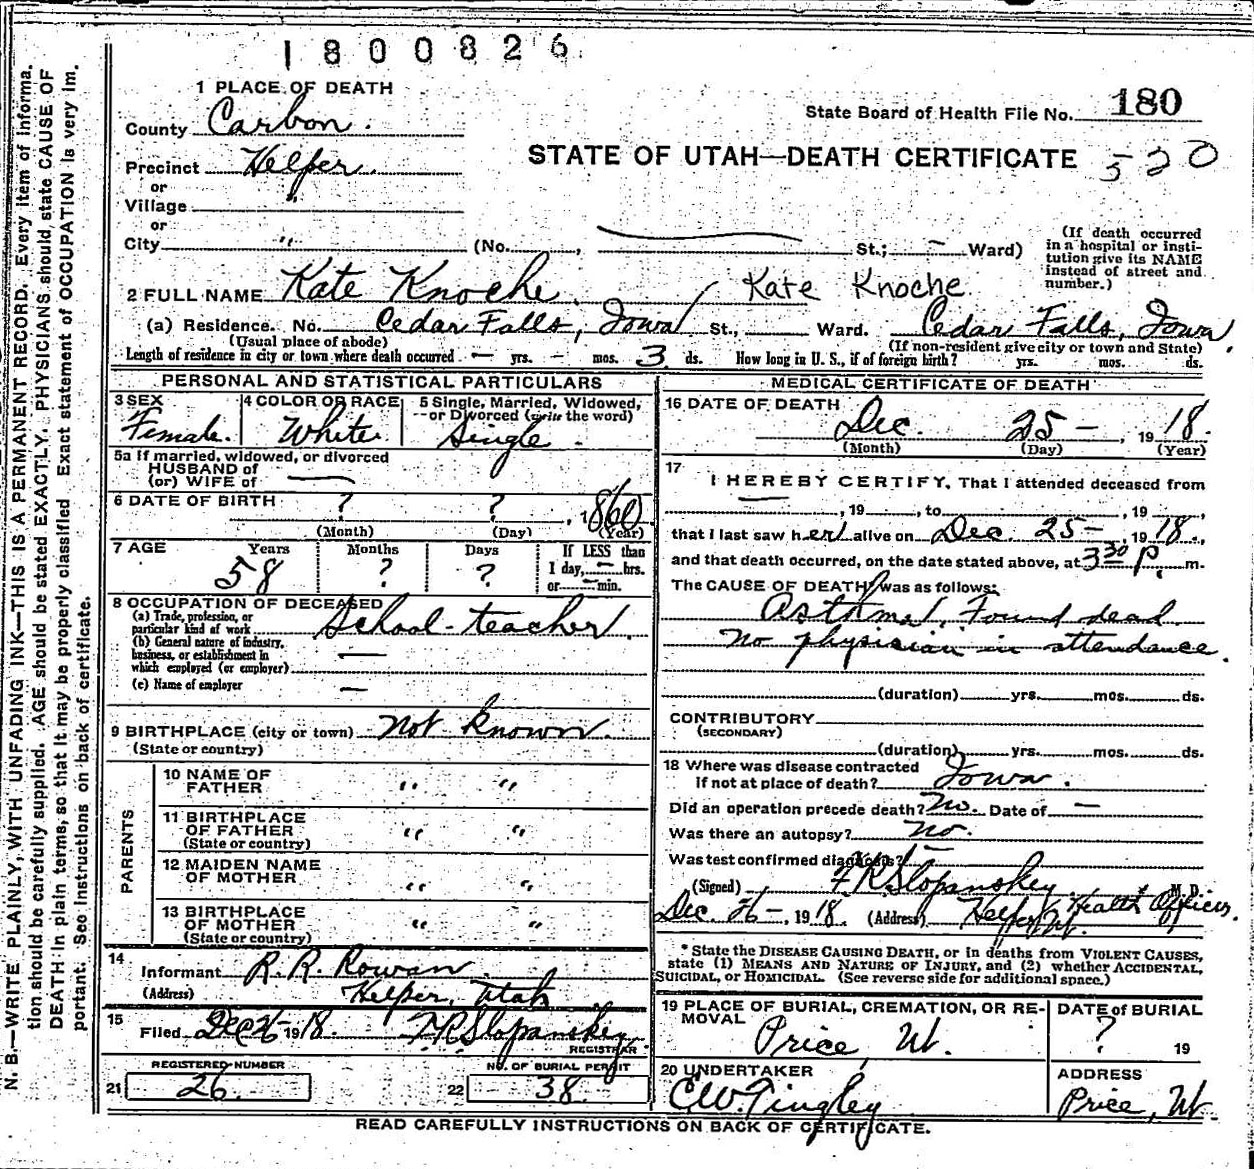 1800826
1 PLACE OF DEATH
State Board of Health File No. 180
County Carbon.
STATE OF UTAH—DEATH CERTIFICATE 520
Precinct Helper.
or
Village "
or
City " (No. , St.; — Ward)
(If death occurred in a hospital or institution give its NAME instead of street and number.)
2 FULL NAME Kate Knoche. Kate Knoche
(a) Residence. No. Cedar Falls, Iowa St., Ward. Cedar Falls, Iowa.
(Usual place of abode) (If non-resident give city or town and State)
Length of residence in city or town where death occurred — yrs. — mos. 3 ds. How long in U. S., if of foreign birth? yrs. mos. ds.
PERSONAL AND STATISTICAL PARTICULARS
3 SEX 4 COLOR OR RACE 5 Single, Married, Widowed,
or Divorced (write the word)
Female. White Single.
5a If married, widowed, or divorced
HUSBAND of
(or) WIFE of —
6 DATE OF BIRTH ? ? , 1860
(Month) (Day) (Year)
7 AGE Years Months Days If LESS than
58 ? ? 1 day, — hrs.
or — min.
8 OCCUPATION OF DECEASED
(a) Trade, profession, or
particular kind of work School-teacher.
(b) General nature of industry,
business, or establishment in —
which employed (or employer)
(c) Name of employer —
9 BIRTHPLACE (city or town) Not known.
(State or country)
PARENTS
10 NAME OF
FATHER " "
11 BIRTHPLACE
OF FATHER " "
(State or country)
12 MAIDEN NAME
OF MOTHER " "
13 BIRTHPLACE
OF MOTHER " "
(State or country)
14
Informant R. R. Rowan
(Address) Helper, Utah
15
Filed Dec 26 1918. F.R. Slopanskey.
REGISTRAR
REGISTERED NUMBER NO. OF BURIAL PERMIT
21 26. 22 38
MEDICAL CERTIFICATE OF DEATH
16 DATE OF DEATH
Dec. 25 — , 1918.
(Month) (Day) (Year)
17
I HEREBY CERTIFY, That I attended deceased from
— , 19 , to , 19 ,
that I last saw her alive on Dec. 25 — , 1918.,
and that death occurred, on the date stated above, at 3 30 P. m.
The CAUSE OF DEATH* was as follows:
Asthma. Found dead.
No physician in attendance.
(duration) yrs. mos. ds.
CONTRIBUTORY
(SECONDARY)
(duration) yrs. mos. ds.
18 Where was disease contracted
if not at place of death? Iowa.
Did an operation precede death? No. Date of —
Was there an autopsy? No.
Was test confirmed diagnosis? —
(Signed) F.R. Slopanskey. M. D.
Health Officer.
Dec. 26 —, 1918. (Address) Helper Ut.
* State the DISEASE CAUSING DEATH, or in deaths from VIOLENT CAUSES,
state (1) MEANS AND NATURE OF INJURY, and (2) whether ACCIDENTAL,
SUICIDAL, or HOMICIDAL. (See reverse side for additional space.)
19 PLACE OF BURIAL, CREMATION, OR RE-
MOVAL Price, Ut.
DATE of BURIAL
? 19
20 UNDERTAKER ADDRESS
E.W. Tingley Price, Ut.
READ CAREFULLY INSTRUCTIONS ON BACK OF CERTIFICATE.
N. B.—WRITE PLAINLY, WITH UNFADING INK—THIS IS A PERMANENT RECORD. Every item of informa-
tion should be carefully supplied. AGE should be stated EXACTLY. PHYSICIANS should state CAUSE OF
DEATH in plain terms, so that it may be properly classified. Exact statement of OCCUPATION is very im-
portant. See instructions on back of certificate.